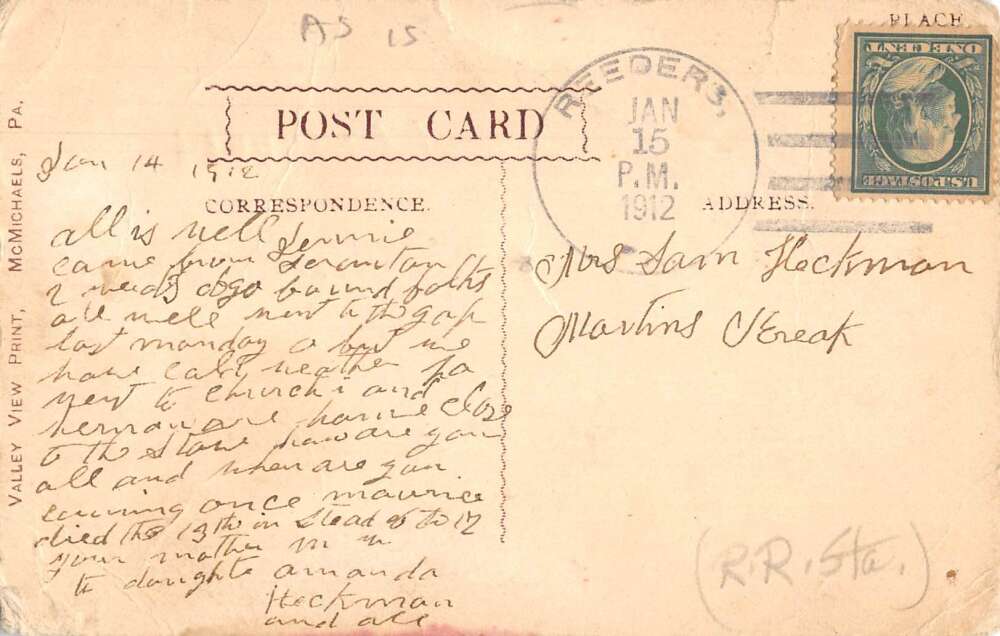 AS 15
PLACE
U.S. POSTAGE
ONE CENT
REEDERS,
JAN
15
P.M.
1912
POST CARD
CORRESPONDENCE.
ADDRESS.
VALLEY VIEW PRINT, MCMICHAELS, PA.
Jan 14 1912
all is well Jennie
came from Scranton
2 weeks ago folks
are well went to the gap
last monday but we
have cald weather pa
went to church i and
herman are home close
to the stove how are you
all and when are you
coming once maurice
died the 13th in stead of the 12
your mother
to daughte amanda
Heckman
and all
Mrs Sam Heckman
Martins Creak
(R.R. Sta.)